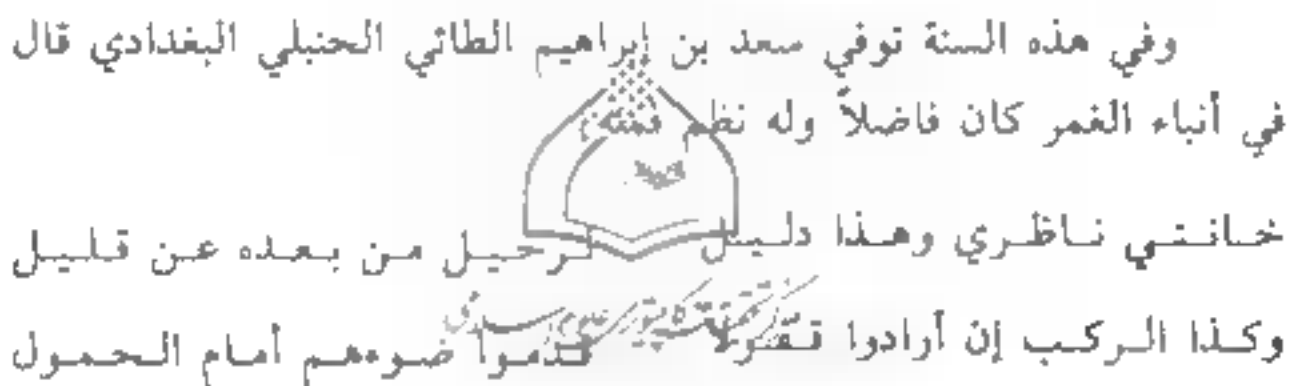 وفي هذه السنة توفي سعد بن إبراهيم الطائي الحنبلي البغدادي قال
في أنباء الغمر كان فاضلاً وله نظم فمنه
خانتني ناظري وهذا دليل لرحيل من بعده عن قليل
وكذا الركب إن أرادوا تقولاً قدموا ضوءهم أمام الحمول